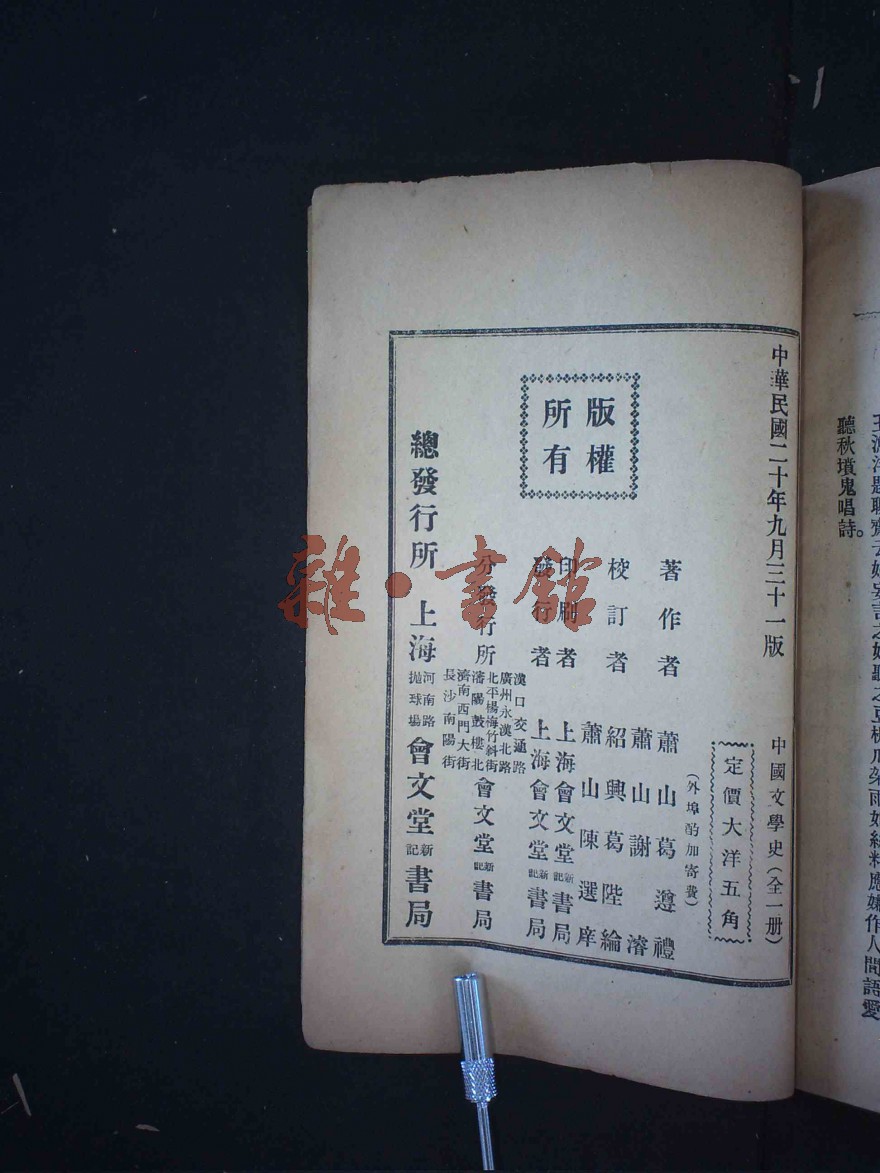 王漁洋題聊齋云姑妄言之姑聽之豆棚瓜架雨如絲料應嫌作人間語愛
聽秋墳鬼唱詩。
中華民國二十年九月三十一版
中國文學史（全一册）
定價大洋五角
（外埠酌加寄費）
版權
所有
著作者 蕭山葛遵禮
蕭山謝濬
校訂者 紹興葛陛綸
蕭山陳選庠
印刷者 上海會文堂新記書局
發行者 上海會文堂新記書局
分發行所
漢口交通路
廣州永漢北路
北平楊梅竹斜街
瀋陽鼓樓北
濟南西門大街
長沙南陽街
會文堂新記書局
總發行所 上海
河南路
拋球場
會文堂新記書局
雜·書館